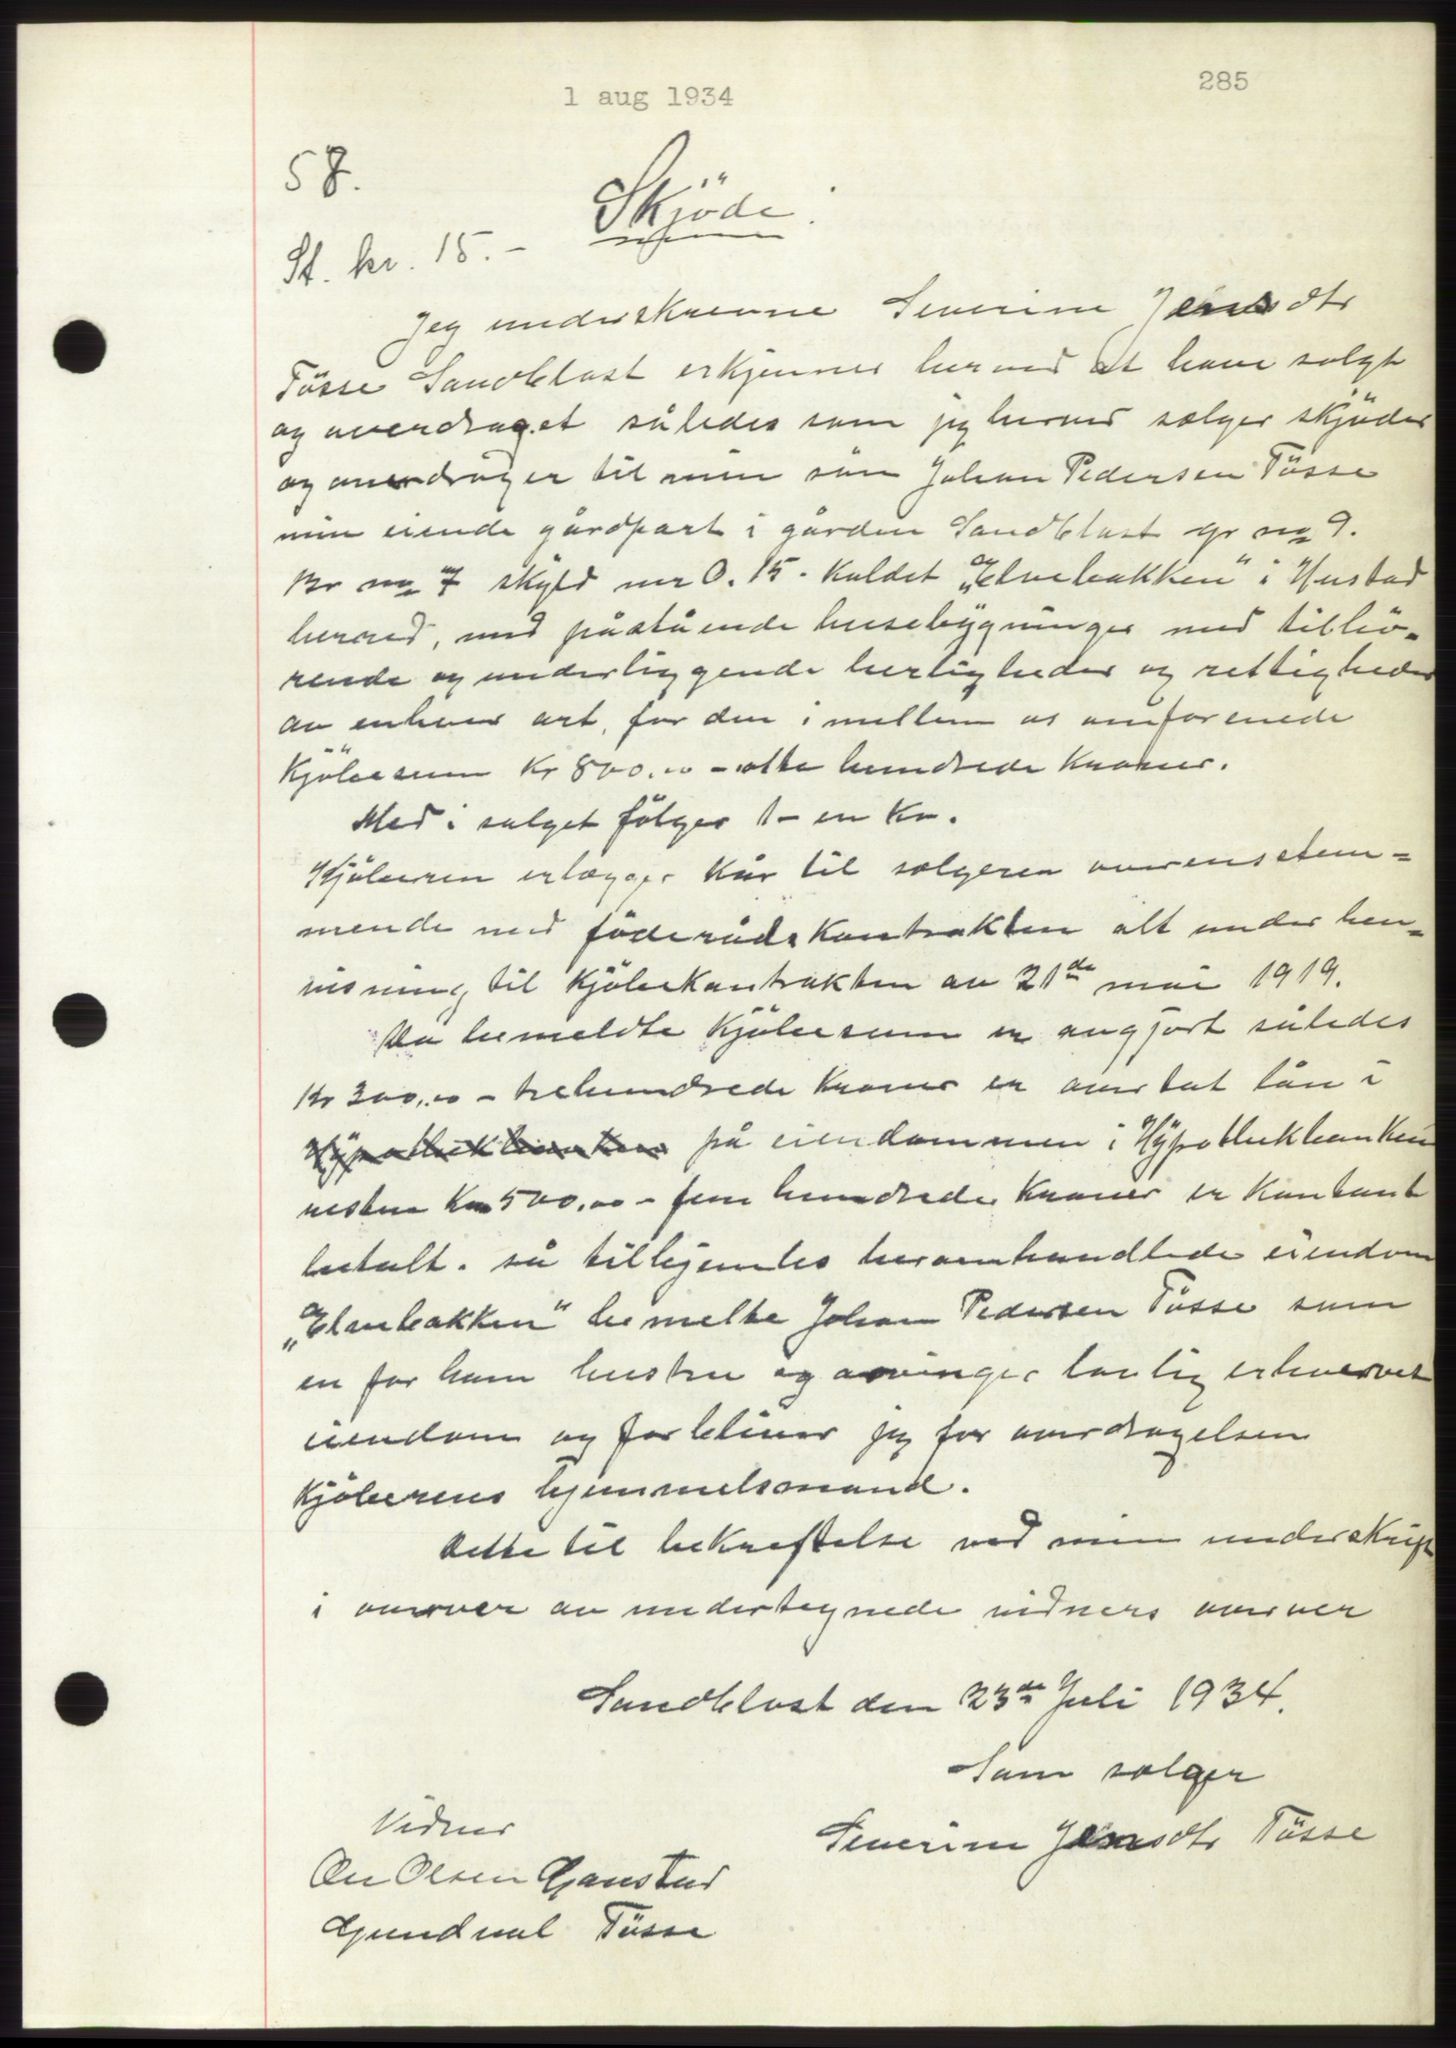 285
1 aug 1934
58.
Skjöde.
St. kr. 15.-
Jeg underskrevne Severine Jensdtr
Tösse Sandblåst erkjenner herved at have solgt
og overdraget således som jeg herved sælger skjöder
og overdrager til min sön Johan Pedersen Tösse
min eiende gårdpart i gården Sandblåst gr no 9.
Br no 7 skyld mr 0.15. kaldet „Elvebakken" i Hustad
herred, med påstående husebygninger med tilhö-
rende og underliggende herligheder og rettigheder
av enhver art, for den i mellem os omforenede
kjöbesum Kr 800.00 - otte hundrede kroner.
Med i salget fölger 1 - en ku.
Kjöberen erlægger kår til sælgeren overenstem-
mende med föderådskontrakten alt under hen-
visning til kjöbekontrakten av 21de mai 1919.
Da bemeldte kjöbesum er avgjort således
Kr 300.00 - trehundrede kroner er overtat lån i
Hypothekbanken på eiendommen i Hypothekbanken
resten Kr 500.00 - fem hundrede kroner er kontant
betalt. så tilhjemles heromhandlede eiendom
„Elvebakken" bemelte Johan Pedersen Tösse som
en for ham hustru og arvinger lovlig erhvervet
eiendom og forbliver jeg for overdragelsen
kjöberens hjemmelsmand.
Dette til bekræftelse ved min underskrift
i overvær av undertegnede vidners overvær
Sandblåst den 23de Juli 1934.
Som sælger
Severine Jensdtr Tösse
Vidner
Ole Olsen Gaustad
Gundval Tösse